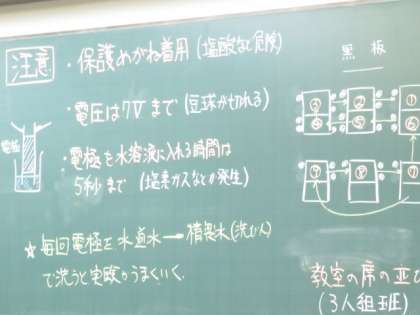 注意
・保護めがね着用(塩酸など危険)
・電圧は7Vまで(豆球が切れる)
電極
・電極を水溶液に入れる時間は
5秒まで(塩素ガスなどが発生)
★毎回電極を水道水→精製水(洗びん)
で洗うと実験がうまくいく。
黒板
③ ② ①
④ ⑤ ⑥
⑦ ⑧ ⑨
教室の席の並び
(3人組班)